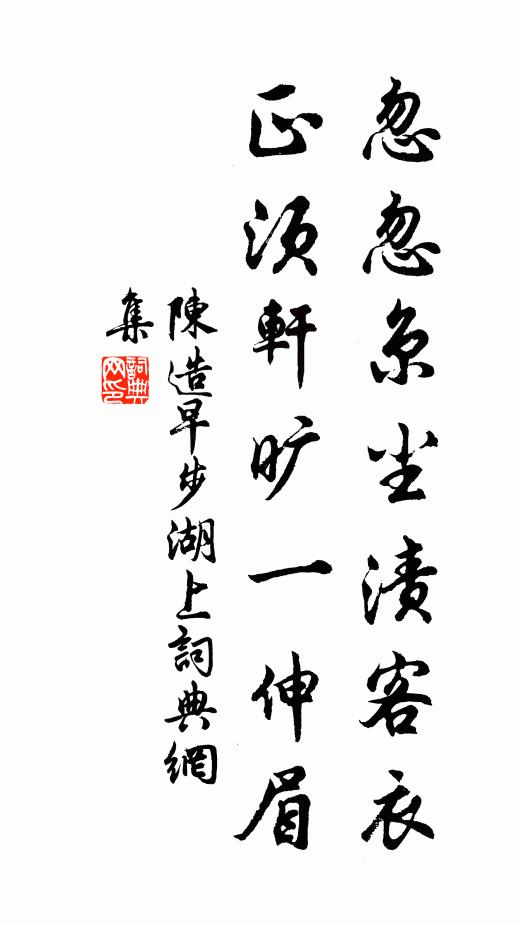 忽忽京尘渍客衣
正须轩旷一伸眉
陳造早步湖上詞典網
集
詞典网印